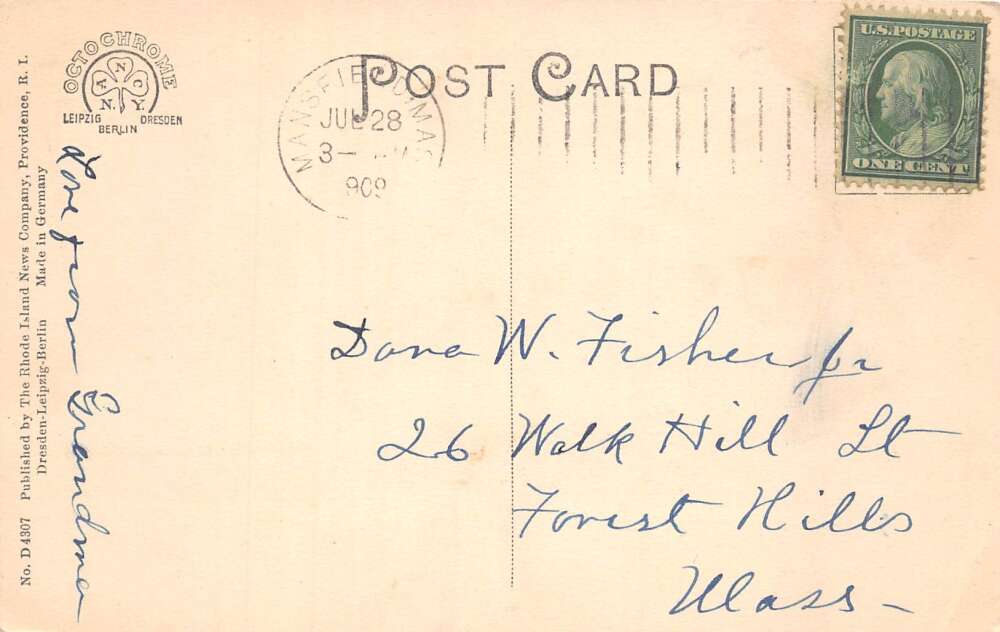 OCTOCHROME
A N C
N. Y.
LEIPZIG DRESDEN
BERLIN
POST CARD
MANSFIELD MASS
JUL 28
3—
1909
U.S. POSTAGE
ONE CENT
No. D 4307 Published by The Rhode Island News Company, Providence, R. I.
Dresden-Leipzig-Berlin Made in Germany
Love from Grandma
Dana W. Fisher Jr
26 Walk Hill St
Forest Hills
Mass-